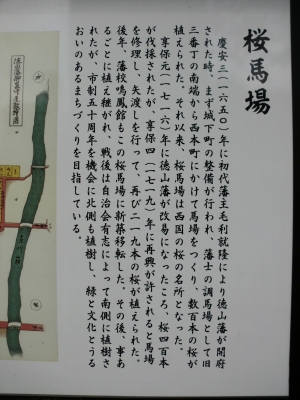 桜馬場
慶安三(一六五〇)年に初代藩主毛利就隆により徳山藩が開府
された時、まず城下町の整備が行われ、藩士の調馬場として旧
三番丁の南端から西本町にかけて馬場をつくり、数百本の桜が
植えられた。それ以来、桜馬場は西国の桜の名所となった。
享保元(一七一六)年に徳山藩が改易になったころ、桜四百本
が伐採されたが、享保四(一七一九)年に再興が許されると馬場
を修理し、矢渡しを行って、再び二一九本の桜が植えられた。
後年、藩校鳴鳳館もこの桜馬場に新築移転した。その後、事あ
るごとに植え継がれ、戦後は自治会有志によって南側に植樹さ
れたが、市制五十周年を機会に北側も植樹し、緑と文化とうる
おいのあるまちづくりを目指している。